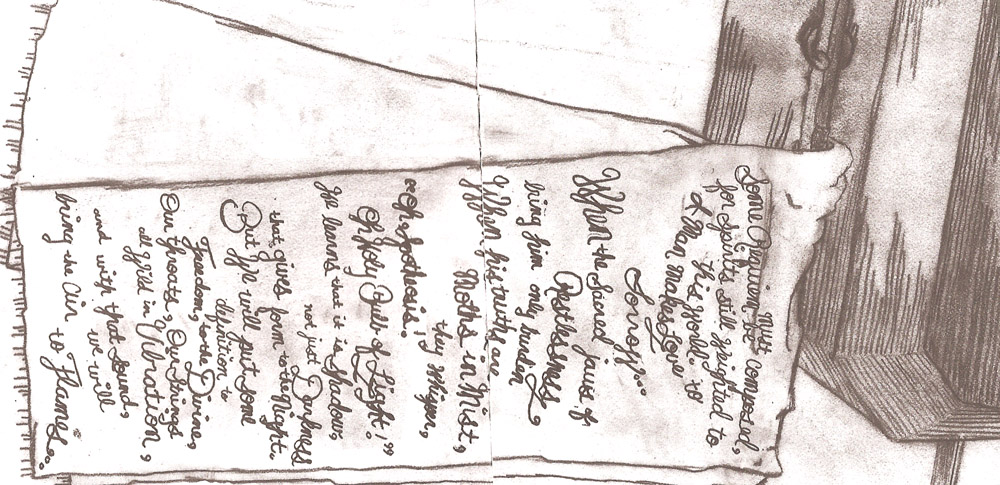 Some Requiem must be composed,
for spirits still Weighted to,
this World.. to
Man
Sorrow...
When the Sacred jaws of
Restlessness,
bring him only burden
When his truths are
Moths in Mist,
they Whisper,
"Apotheosis!
Oh Holy Quilt of Light!"
He learns that it is Shadow,
not just Darkness
that gives form to the Night.
But We will put some
definition to
Freedom, to the Divine,
Our throats, Our Strings
all Wild in Vibration,
and with that Sound,
we will
bring the Air to Flames.